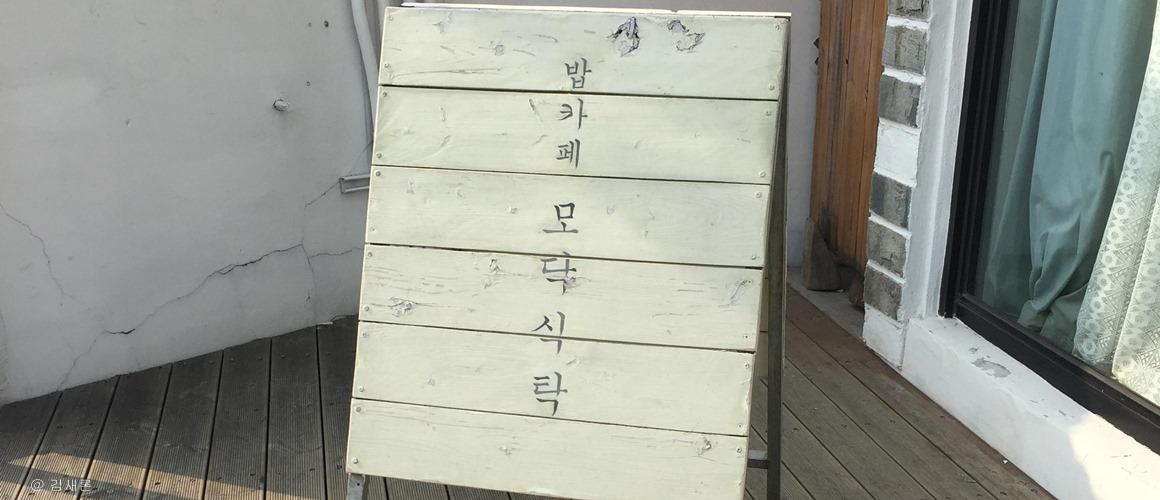 밥
카
페
모
닥
식
탁
@ 김새롬